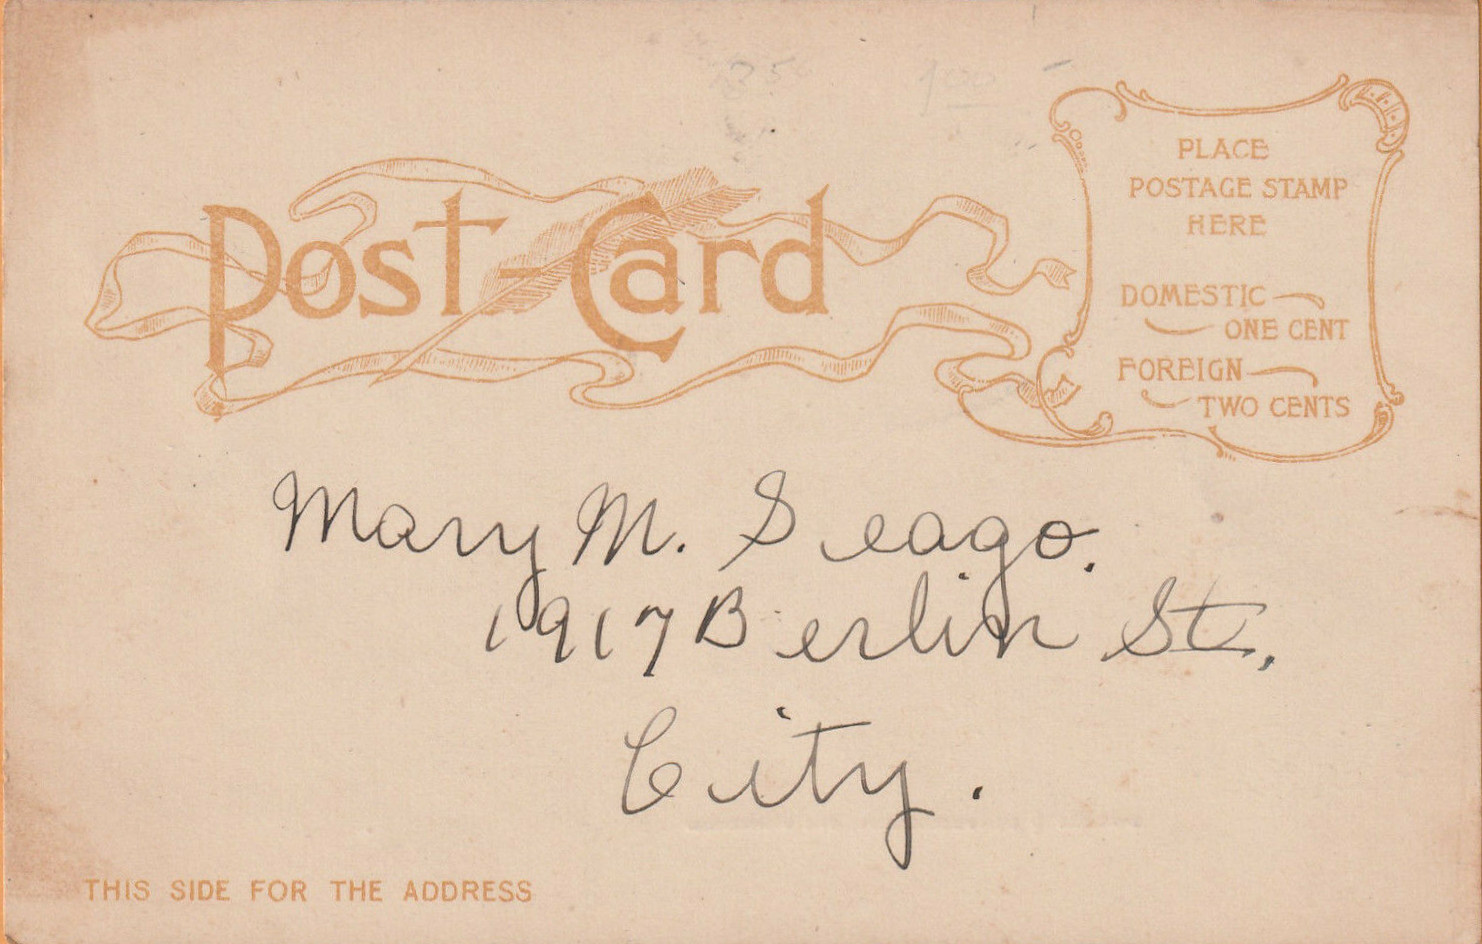 Post-Card
PLACE
POSTAGE STAMP
HERE
DOMESTIC
ONE CENT
FOREIGN
TWO CENTS
Mary M. Seago.
1917 Berlin St.,
City.
THIS SIDE FOR THE ADDRESS